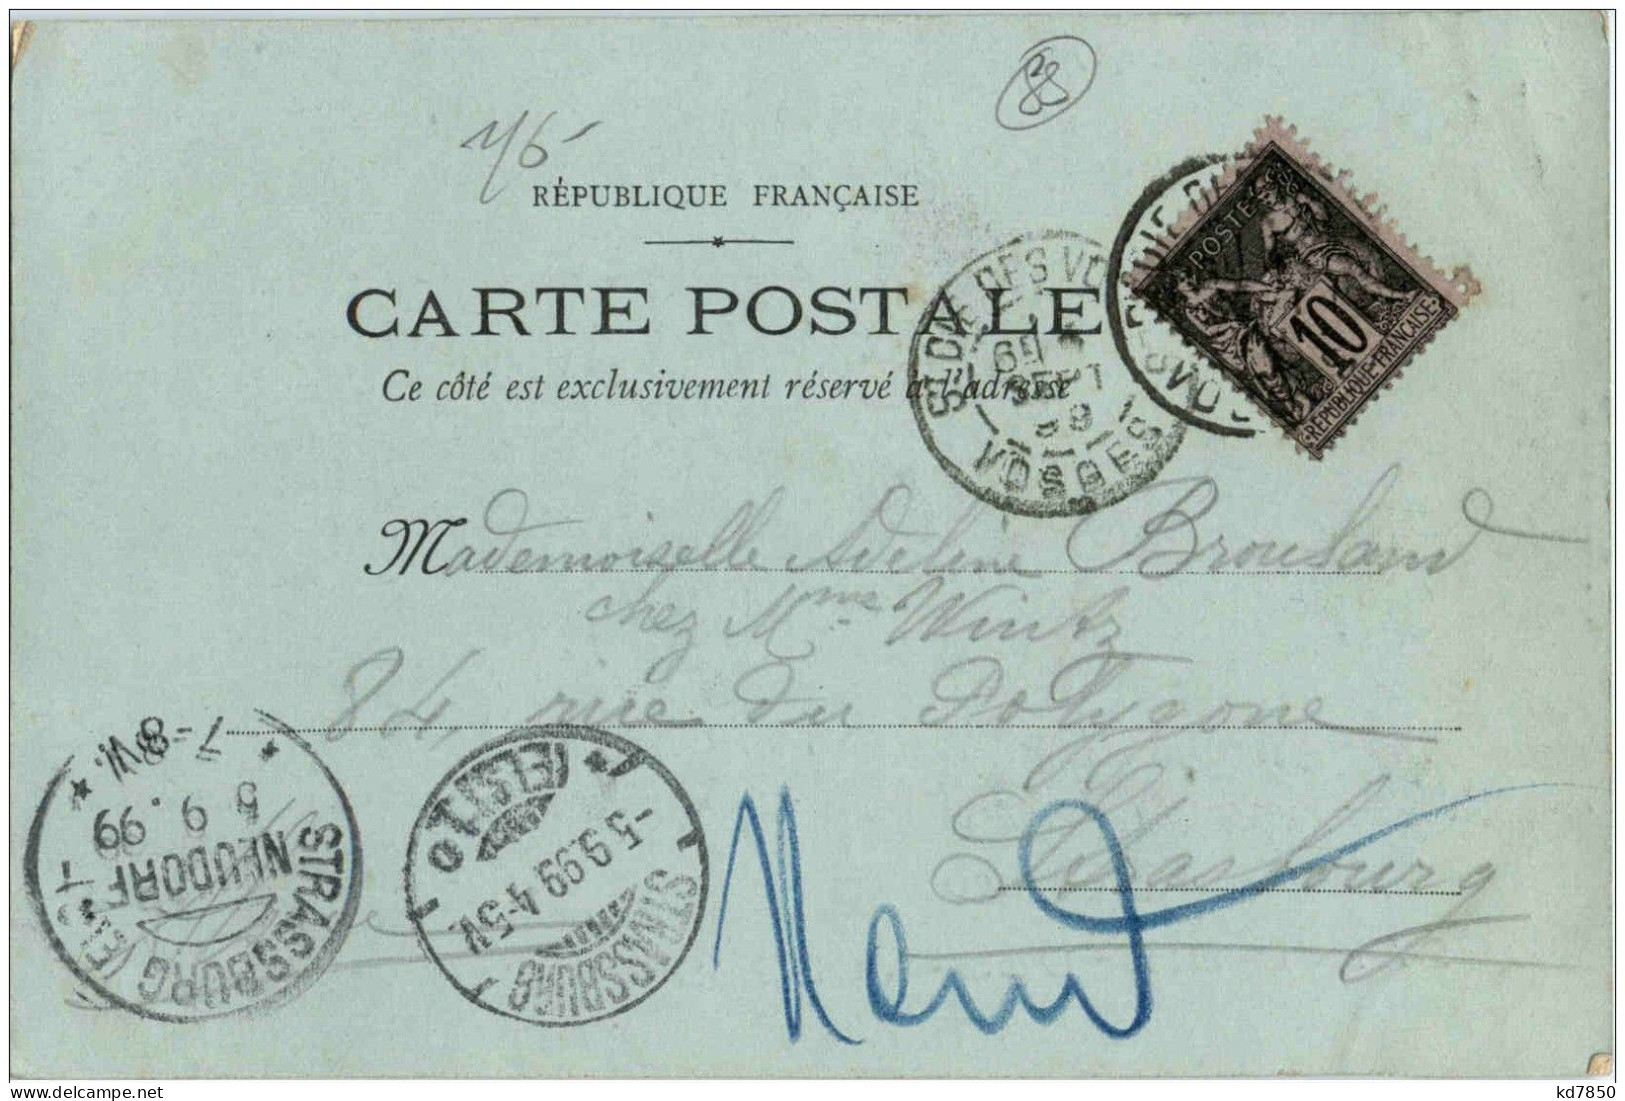 88
RÉPUBLIQUE FRANÇAISE
CARTE POSTALE
Ce côté est exclusivement réservé à l'adresse
POSTES
10
REPUBLIQUE FRANÇAISE
ST DIE DES VOSGES
SEPT
VOSGES
Mademoiselle Adelene
chez Mme Wintz
84, rue du Polygone
Strasbourg
Neud
STRASSBURG (ELS.)
NEUDORF
5 9.99
7-8V.
STRASSBURG (ELS.) 10
-5.9.99.4-5V.
kd7850